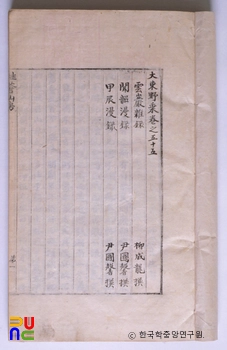 大東野乘卷之五十五
雲巖雜錄 柳成龍撰
聞韶漫錄 尹國馨撰
甲辰漫錄 尹國馨撰
ⓒ 한국학중앙연구원